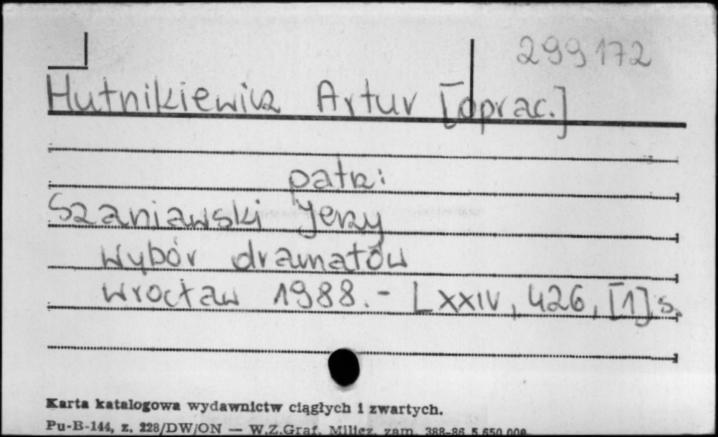 299172
Hutnikiewicz Artur [oprac.]
patrz:
Szaniawski Jerzy
Wybór dramatów
Wrocław 1988.- LXXIV, 426, [1] s.
Karta katalogowa wydawnictw ciągłych i zwartych.
Pu-B-144, z. 228/DW/ON — W.Z.Graf. Milicz, zam. 388-86 5.650.000